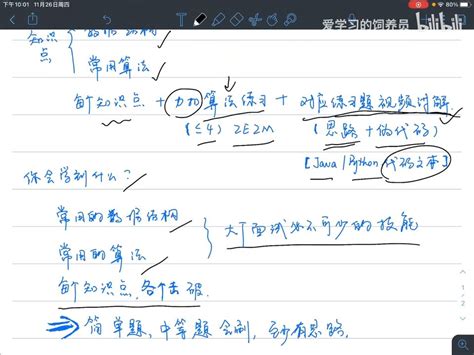 下午10:01 11月26日周四
80%
爱学习的饲养员 bilibili
知识点 { 数据结构
常用算法
每个知识点 + 力扣 算法练习 + 对应练习题视频讲解
(≤4) 2E2M (思路 + 伪代码)
[Java/Python 代码文本]
你会学到什么？
常用的数据结构
常用的算法 } 大厂面试必不可少的技能
每个知识点，各个击破.
⇒ 简单题、中等题 会刷，至少有思路.